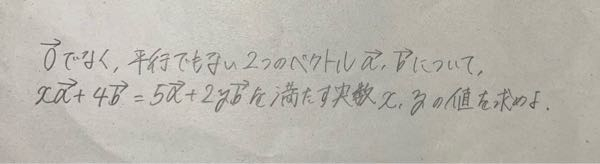 0⃗でなく,平行でもない2つのベクトルa⃗,b⃗について,
xa⃗+4b⃗=5a⃗+2yb⃗を満たす実数x,yの値を求めよ.